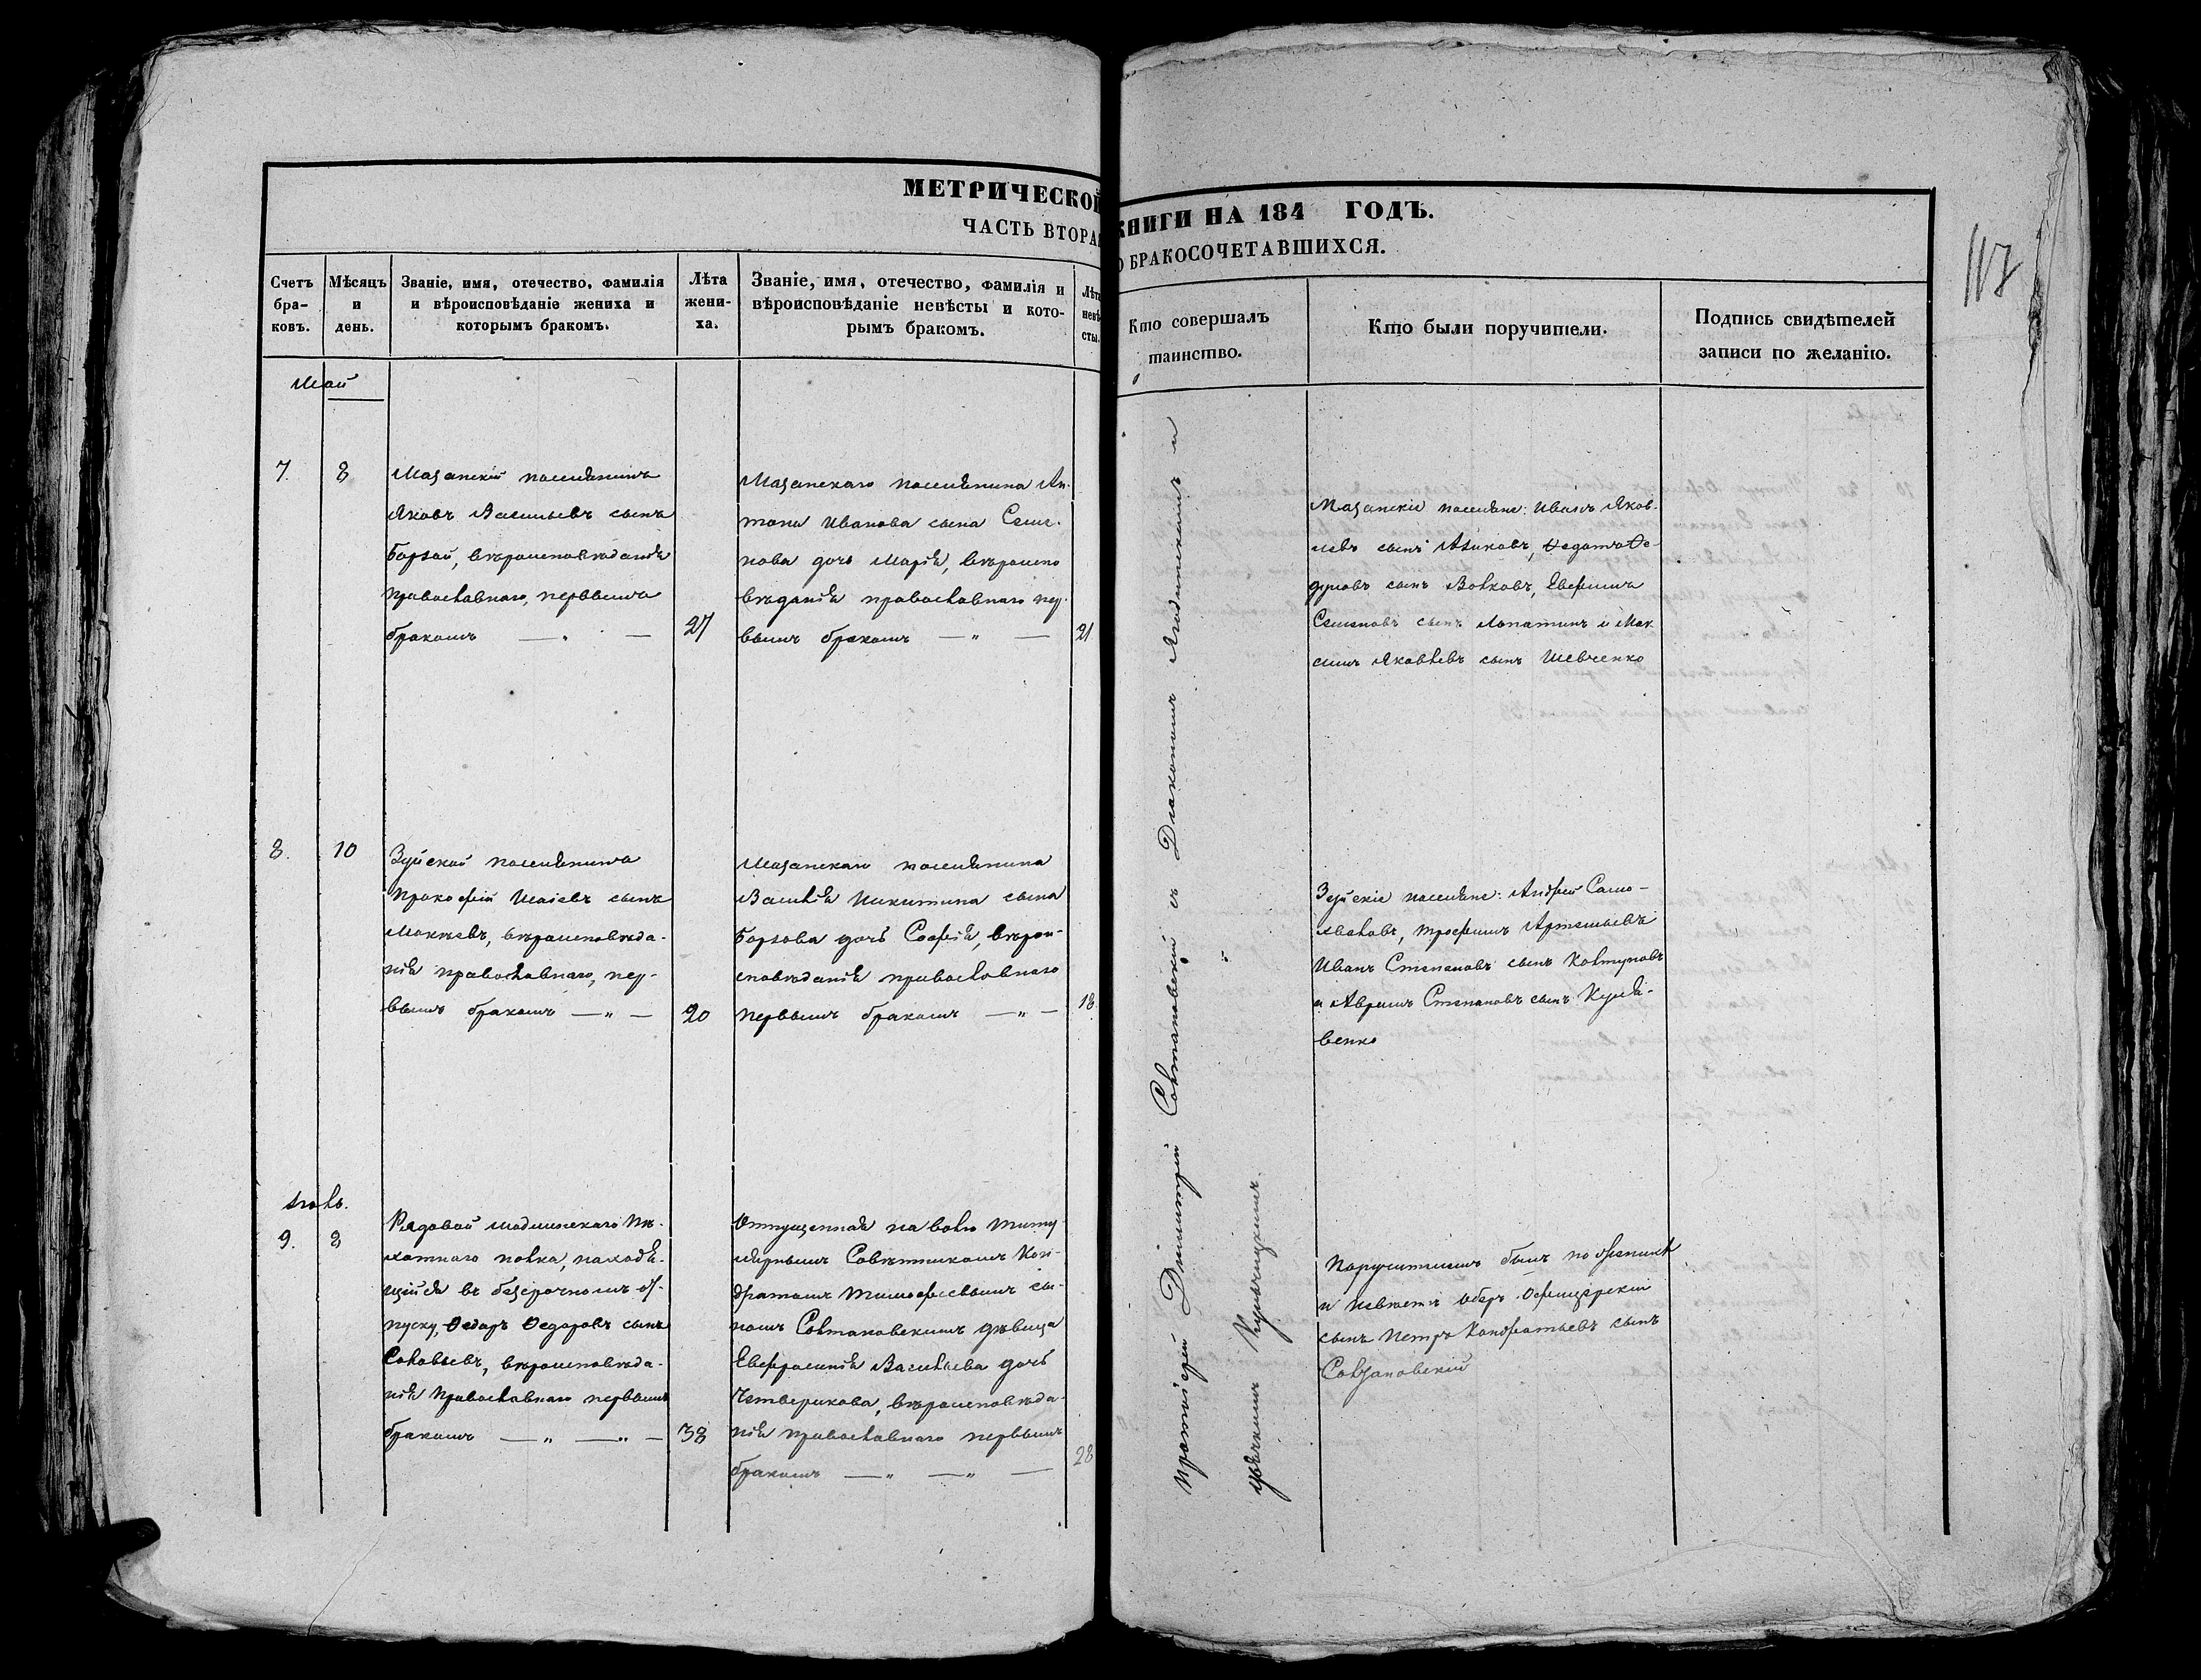 МЕТРИЧЕСКОЙ КНИГИ НА 184 ГОДЪ.
ЧАСТЬ ВТОРАЯ О БРАКОСОЧЕТАВШИХСЯ.
117
Счетъ
бра-
ковъ.
Мѣсяцъ
и
день.
Званіе, имя, отечество, фамилія
и вѣроисповѣданіе жениха и
которымъ бракомъ.
Лѣта
жени-
ха.
Званіе, имя, отечество, фамилія и
вѣроисповѣданіе невѣсты и кото-
рымъ бракомъ.
Лѣта
невѣ-
сты.
Кто совершалъ
таинство.
Кто были поручители.
Подпись свидѣтелей
записи по желанію.
Май
7.
8
Мазанскій поселянинъ
Яковъ Васильевъ сынъ
Борзой, вѣроисповѣданія
православнаго, первымъ
бракомъ — „ —
27
Мазанскаго поселянина Ан-
тона Иванова сына
дочь Марія, вѣроиспо
вѣданія православнаго пер-
вымъ бракомъ — „ —
21
Мазанскіе поселяне: Иванъ Яков-
левъ сынъ Федотъ Ѳе-
сынъ Волковъ, Евфимъ
Семеновъ сынъ Лопатинъ и Мак
симъ Яковлевъ сынъ Шевченко
8.
10
Зуйской поселянинъ
Прокофій Исаіевъ сынъ
вѣроисповѣда-
нія православнаго, пер-
вымъ бракомъ — „ —
20
Мазанскаго поселянина
Василія Никитина сына
Борзова дочь Софія, вѣрои-
сповѣданія православнаго
первымъ бракомъ — „ —
18
Зуйскіе поселяне: Андрей Само-
хваловъ, Трофимъ Артемьевъ
Иванъ Степановъ сынъ Колтуновъ
и Аврамъ Степановъ сынъ
венко
Іюль.
9.
8
Рядовой Модлинскаго Пѣ-
хотнаго полка, находя-
щійся въ безсрочномъ от-
пуску, Ѳедоръ Ѳедоровъ сынъ
Соловьевъ, вѣроисповѣда-
нія Православнаго первымъ
бракомъ — „ — „ —
38
Отпущенная на волю Титу-
лярнымъ Совѣтникомъ Кон-
дратомъ Тимофеевымъ сы-
номъ Солтановскимъ дѣвица
Евфросинія Васильева дочь
Четверикова, вѣроисповѣда-
нія православнаго первымъ
бракомъ — „ — „ —
28
Поручителемъ былъ по женихѣ
и невѣстѣ Оберъ Офицерскій
сынъ Петръ Кондратьевъ сынъ
Солтановскій
Протоіерей Димитрій Солтановскій съ Діакономъ и